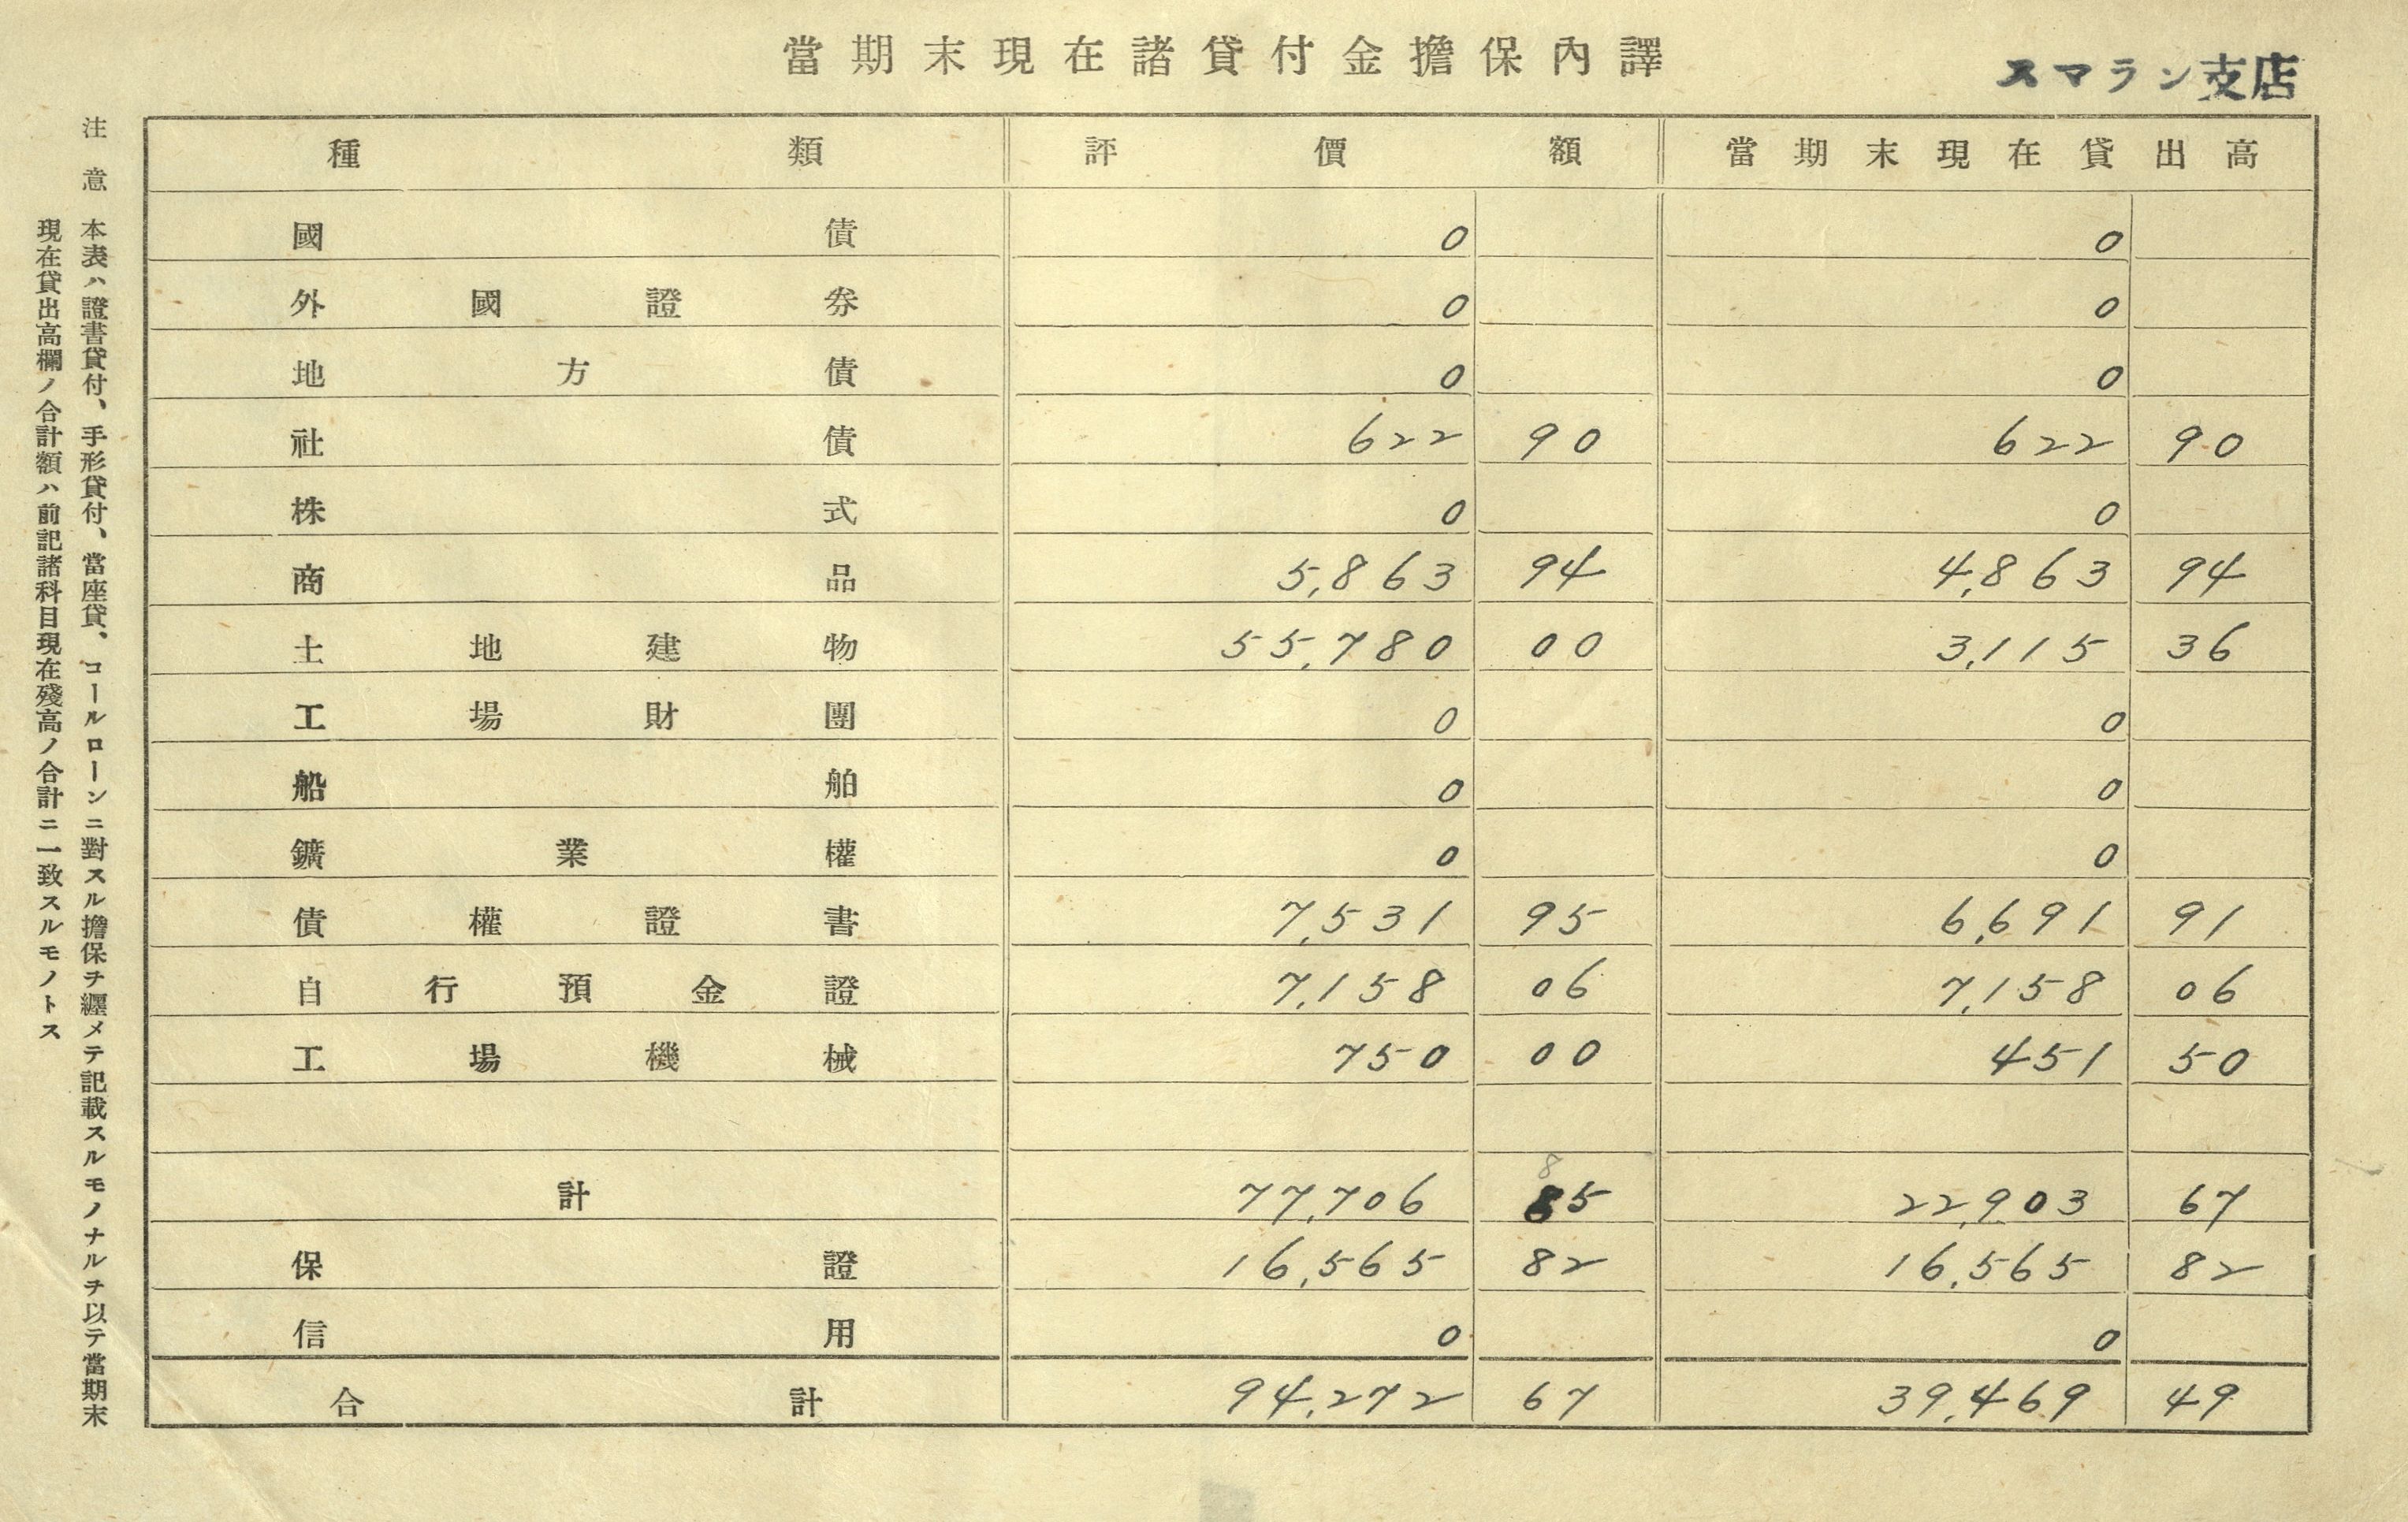 當期末現在諸貸付金擔保內譯
スマラン支店
種類 評價額 當期末現在貸出高
國債 0 0
外國證券 0 0
地方債 0 0
社債 622 90 622 90
株式 0 0
商品 5,863 94 4,863 94
土地建物 55,780 00 3,115 36
工場財團 0 0
船舶 0 0
鑛業權 0 0
債權證書 7,531 95 6,691 91
自行預金證 7,158 06 7,158 06
工場機械 750 00 451 50
8
計 77,706 85 22,903 67
保證 16,565 82 16,565 82
信用 0 0
合計 94,272 67 39,469 49
注意 本表ハ證書貸付、手形貸付、當座貸、コールローンニ對スル擔保ヲ纒メテ記載スルモノナルヲ以テ當期末
現在貸出高欄ノ合計額ハ前記諸科目現在殘高ノ合計ニ一致スルモノトス